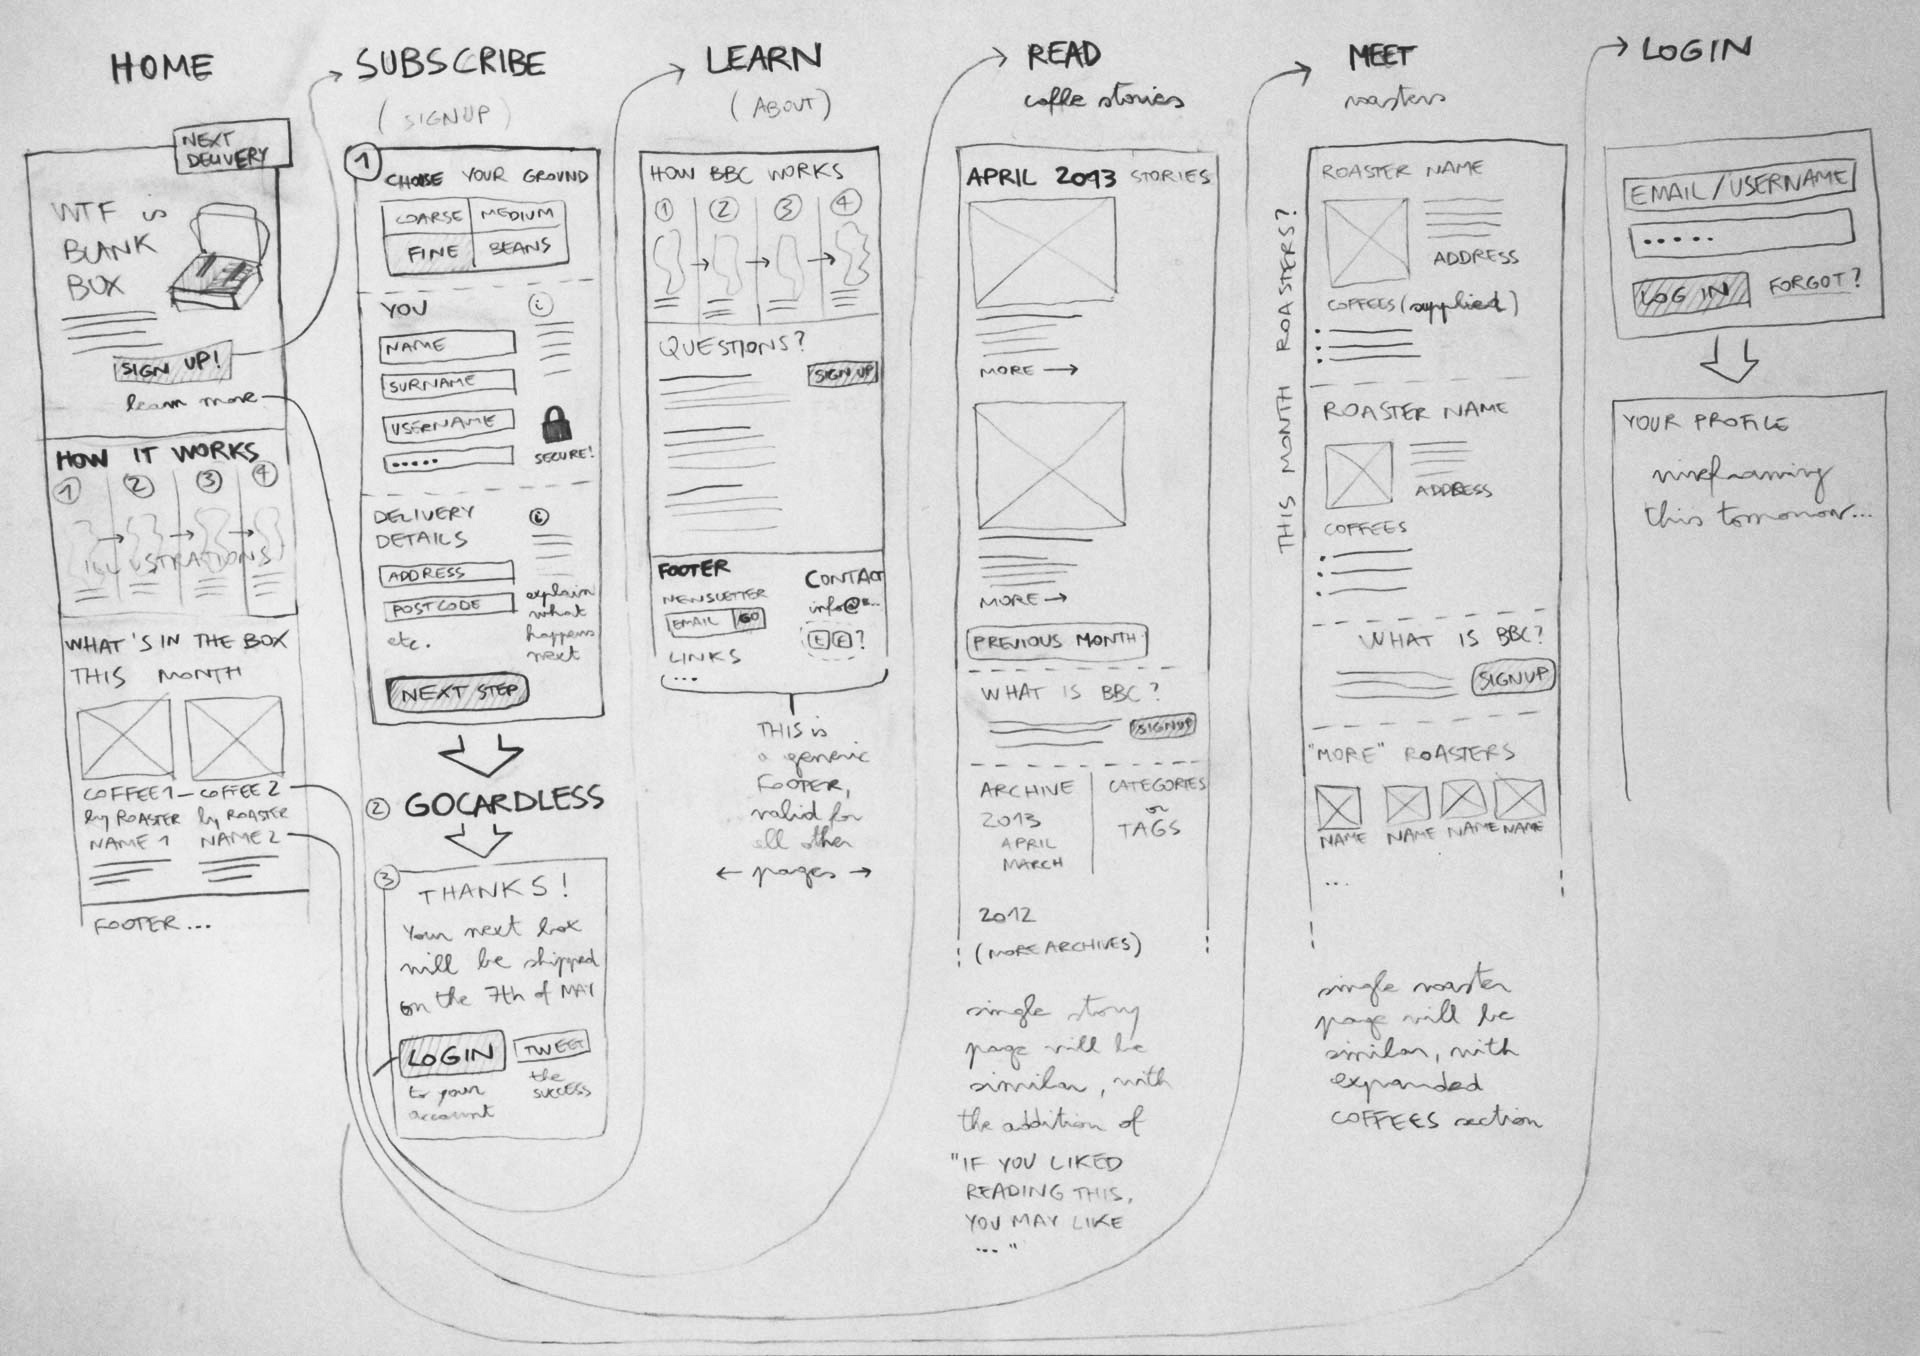 HOME
NEXT
DELIVERY
WTF is
BLANK
BOX
SIGN UP!
learn more
HOW IT WORKS
1 2 3 4
ILLUSTRATIONS
WHAT'S IN THE BOX
THIS MONTH
COFFEE 1 - COFFEE 2
by ROASTER by ROASTER
NAME 1 NAME 2
FOOTER...
SUBSCRIBE
(SIGNUP)
1
CHOOSE YOUR GROUND
COARSE MEDIUM
FINE BEANS
YOU
i
NAME
SURNAME
USERNAME
.....
SECURE!
DELIVERY
DETAILS
i
ADDRESS
POSTCODE
etc.
explain
what
happens
next
NEXT STEP
2 GOCARDLESS
3
THANKS!
Your next box
will be shipped
on the 7th of MAY
LOGIN
to your
account
TWEET
the
SUCCESS
LEARN
(ABOUT)
HOW BBC WORKS
1 2 3 4
QUESTIONS?
SIGN UP
FOOTER
NEWSLETTER
EMAIL GO
LINKS
...
CONTACT
info@B...
t f ?
THIS is
a generic
FOOTER,
valid for
all other
← pages →
READ
coffe stories
APRIL 2013 STORIES
MORE →
MORE →
PREVIOUS MONTH
WHAT IS BBC?
SIGNUP
ARCHIVE
2013
APRIL
MARCH
CATEGORIES
or
TAGS
2012
(MORE ARCHIVES)
single story
page will be
similar, with
the addition of
"IF YOU LIKED
READING THIS,
YOU MAY LIKE
..."
MEET
roasters
THIS MONTH ROASTERS?
ROASTER NAME
ADDRESS
COFFEES (supplied)
ROASTER NAME
ADDRESS
COFFEES
WHAT IS BBC?
SIGNUP
"MORE" ROASTERS
NAME NAME NAME NAME
...
single roaster
page will be
similar, with
expanded
COFFEES section
LOGIN
EMAIL/USERNAME
.....
LOG IN FORGOT?
YOUR PROFILE
wireframing
this tomorrow...